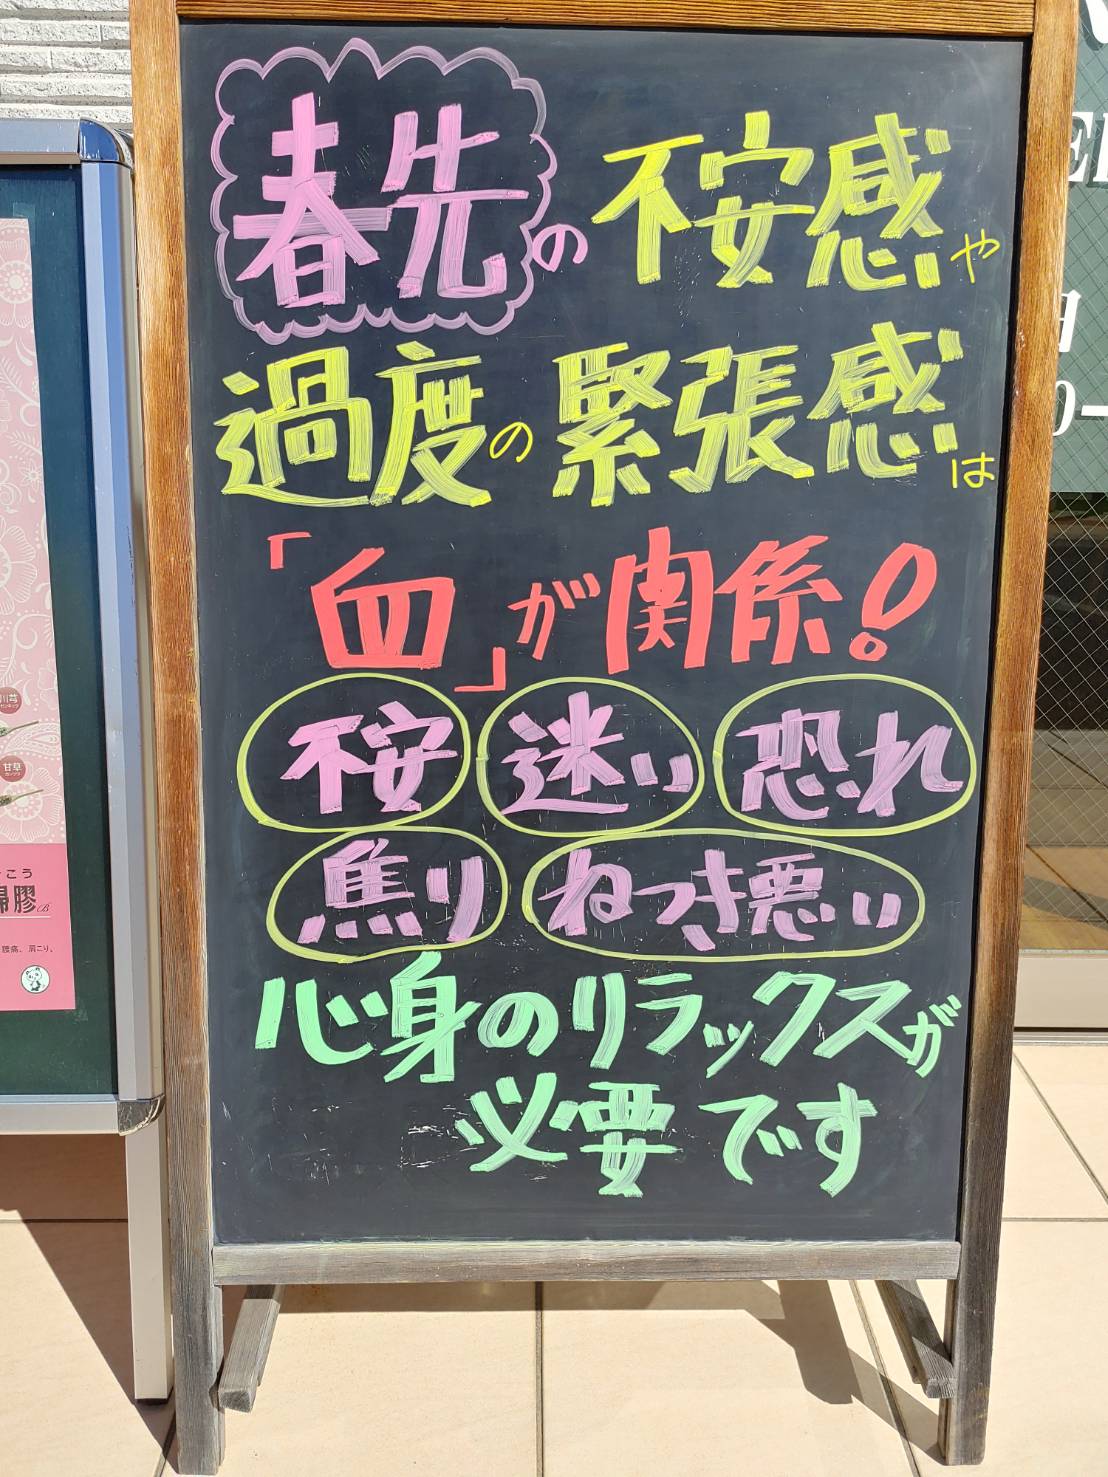 春先の不安感や
過度の緊張感は
「血」が関係！
不安 迷い 恐れ
焦り ねつき悪い
心身のリラックスが
必要です
川芎
甘草
腰痛、肩こり、